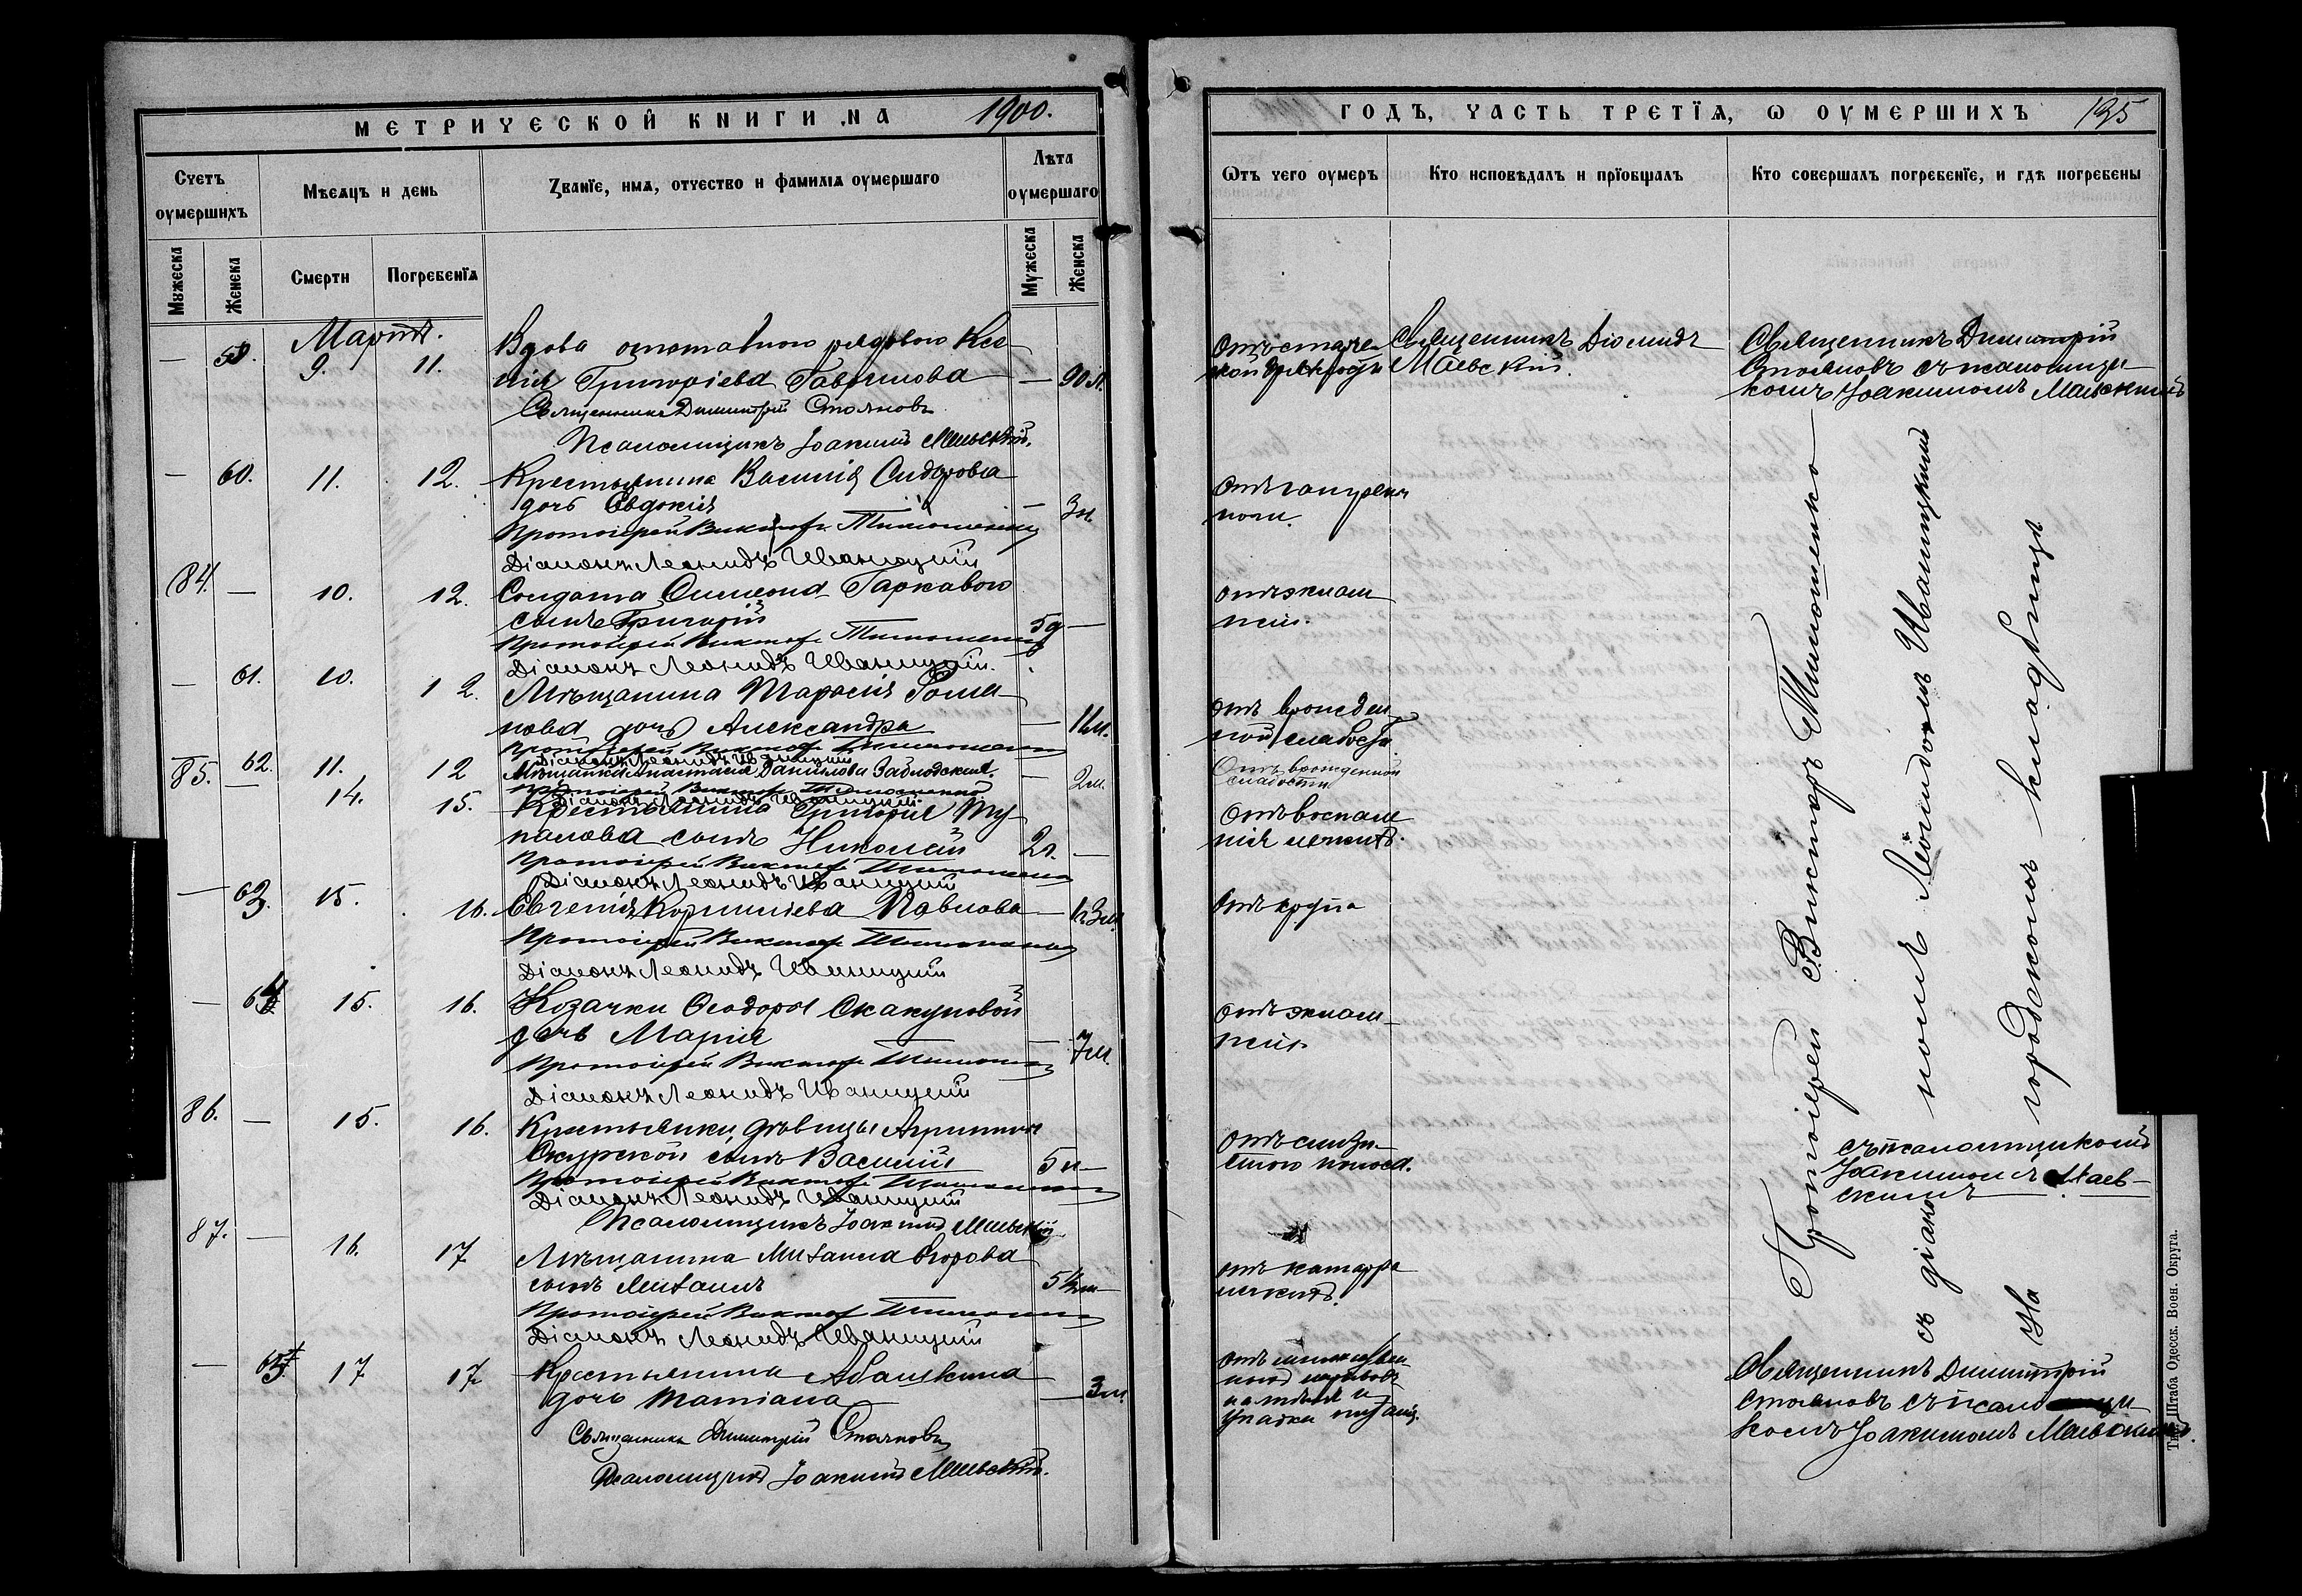 МЕТРИЧЕСКОЙ КНИГИ НА 1900.
Счетъ оумершихъ
Мѣсяцъ и день
Званїе, имя, отчество и фамилїя оумершаго
Лѣта оумершаго
Мужеска
Женска
Смерти
Погребенїя
Мужеска
Женска
Мартъ.
— 9. 11. Вдова отставного рядового Ксе
нія Григоріева Гаврилова — 90 л.
Священникъ Димитрій Стояновъ
Псаломщикъ Іоакимъ Маевскій.
— 60. 11. 12. Крестьянина Василія Сидорова
дочь Евдокія — 3 м.
Протоіерей Викторъ Тимошенко
Діаконъ Леонидъ Иваницкій
84. — 10. 12. Солдата Симеона Гаркавого
сынъ Григорій 5 д —
Протоіерей Викторъ Тимошенко
Діаконъ Леонидъ Иваницкій.
— 61. 10. 12. Мѣщанина Тарасія Рома
нова дочь Александра — 11 м.
Протоіерей Викторъ Тимошенко
Діаконъ Леонидъ Иваницкій
62. 11. 12 Мѣщанка Анастасія Данилова — 2 м.
Протоіерей Викторъ Тимошенко
Діаконъ Леонидъ Иваницкій.
85. — 14. 15. Крестьянина Григорія Ту
палова сынъ Николай 2 г. —
Протоіерей Викторъ Тимошенко
Діаконъ Леонидъ Иваницкій
— 63. 15. 16. Евгенія Корнилїева Павлова — 1 г. 3 м.
Протоіерей Викторъ Тимошенко
Діаконъ Леонидъ Иваницкій
— 64 15. 16. Козачки Ѳеодоры Скакуновой
дочь Марія — 7 м.
Протоіерей Викторъ Тимошенко
Діаконъ Леонидъ Иваницкій
86. — 15. 16. Крестьянки, дѣвицы Агриппины
сынъ Василій —
Протоіерей Викторъ Тимошенко
Діаконъ Леонидъ Иваницкій
Псаломщикъ Іоакимъ Маевскій
87. — 16. 17 Мѣщанина Михаила Егорова
сынъ Михаилъ —
Протоіерей Викторъ Тимошенко
Діаконъ Леонидъ Иваницкій
— 65. 17 17 Крестьянина
дочь Татіана — 3 м.
Священникъ Димитрій Стояновъ
Псаломщикъ Іоакимъ Маевскій.
ГОДЪ, ЧАСТЬ ТРЕТЇЯ, Ѡ ОУМЕРШИХЪ 135
Ѿтъ чего оумеръ
Кто исповѣдалъ и прїобщалъ
Кто совершалъ погребенїе, и гдѣ погребены
Отъ старче
ской дряхлости
Священникъ Діомидъ
Маевскій.
Священникъ Димитрій
Стояновъ съ псаломщи
комъ Іоакимомъ Маевскимъ
отъ
отъ эклам
псіи.
отъ врожден
ной слабости
Отъ врожденной
слабости
Отъ воспале
нія легкихъ.
Отъ крупа
отъ эклам
псіи.
отъ слизи
стого поноса.
отъ катарра
легкихъ.
отъ
упадка питанія.
Протоіерей Викторъ Тимошенко
съ діакономъ Леонидомъ Иваницкимъ
На городскомъ кладбищѣ
съ псаломщикомъ
Іоакимомъ Маев
скимъ
Священникъ Димитрій
Стояновъ съ псаломщи
комъ Іоакимомъ Маевскимъ.
Тип. Штаба Одесск. Воен. Округа.